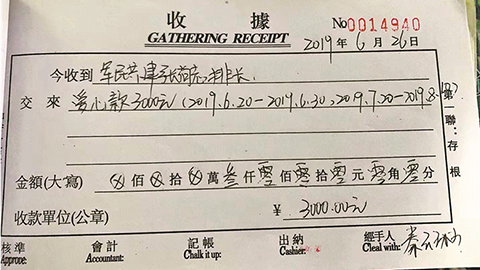 收據
GATHERING RECEIPT
No 0014940
2019 年 6 月 26 日
今收到 军民共建张 排长
交來 爱心款3000元 (2019.6.20-2019.6.30, 2019.7.20-2019.8.
第二聯:存根
金額(大寫) ⊗佰⊗拾⊗萬叁仟零佰零拾零元零角零分
收款單位(公章) ¥ 3000.00元
核準 會計 記帳 出納 經手人 秦
Appropre: Accountant: Chalk it up: Cashier: Cleal with: